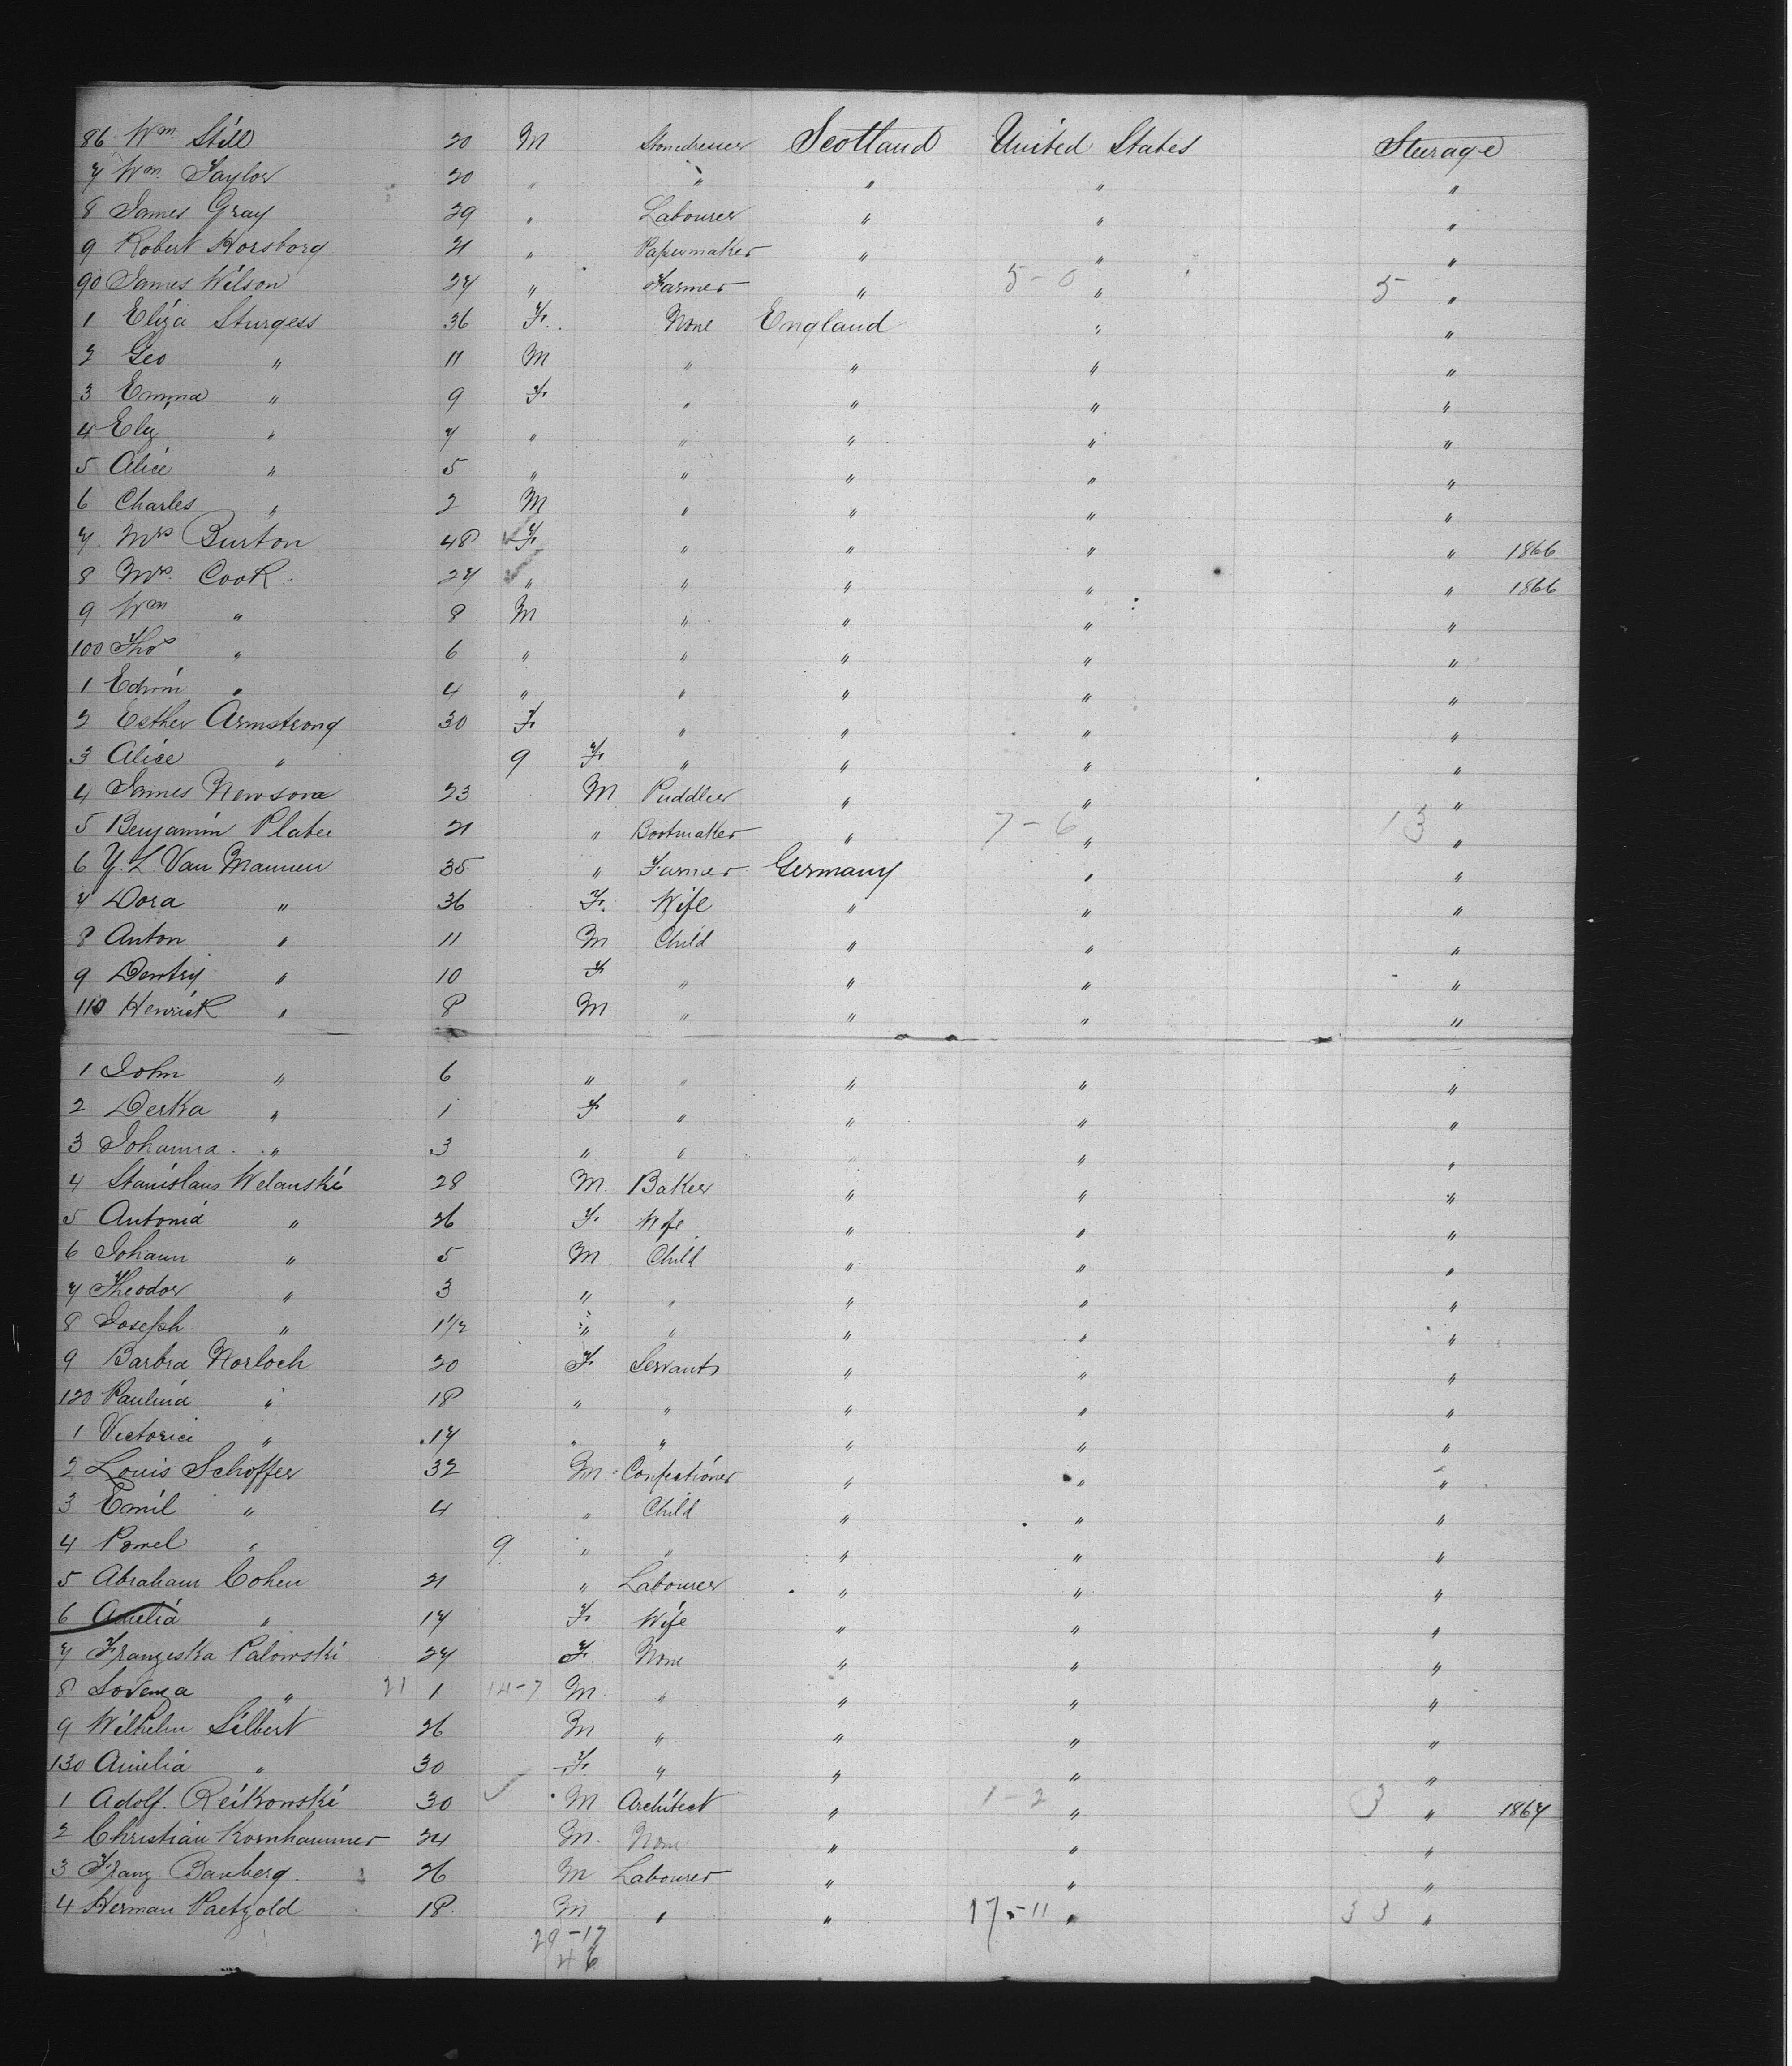 86 Wm. Still 20 M Stonedresser Scotland United States Steerage
7 Wm. Taylor 20 " " " " "
8 James Gray 29 " Labourer " " "
9 Robert Horsborg 21 " Papermaker " " "
90 James Wilson 27 " Farmer " 5-0 " 5 "
1 Eliza Sturgess 36 F. None England " "
2 Geo " 11 M " " " "
3 Emma " 9 F " " " "
4 Eliz " 7 " " " " "
5 Alice " 5 " " " " "
6 Charles " 2 M " " " "
7. Mrs Burton 48 F " " " " 1866
8 Mrs. Cook. 27 " " " " " 1866
9 Wm " 8 M " " " "
100 Thos " 6 " " " " "
1 Edwin " 4 " " " " "
2 Esther Armstrong 30 F " " " "
3 Alice " 9 F. " " " "
4 James Newsome 23 M. Puddler " " "
5 Benjamin Platee 21 " Bootmaker " 7-6 " 13 "
6 Y. L. Van Mannen 35 " Farmer Germany " "
7 Dora " 36 F. Wife " " "
8 Anton " 11 M Child " " "
9 " 10 F " " " "
110 Henrick " 8 M " " " "
1 John " 6 " " " " "
2 Derka " 1 F " " " "
3 Johanna " 3 " " " " "
4 Stanislaus Welanski 28 M. Baker " " "
5 Antonia " 26 F. Wife " " "
6 Johann " 5 M Child " " "
7 Theodor " 3 " " " " "
8 Joseph " 1 1/2 " " " " "
9 Barbra Norloch 20 F. Servants " " "
120 Paulina " 18 " " " " "
1 Victoria " 17 " " " " "
2 Louis Schoffer 32 M. Confectioner " " "
3 Emil " 4 " Child " " "
4 " 9 " " " " "
5 Abraham Cohen 21 " Labourer " " "
6 Amelia " 17 F. Wife " " "
7 Franzeska Palowski 27 F. None " " "
8 " 21 1 14-7 M. " " " "
9 Wilhelm Silbert 26 M " " " "
130 Amelia " 30 F. " " " "
1 Adolf. Reikowski 30 M Architect " 1-2 " 3 " 1867
2 Christian Kornhammer 24 M. None " " "
3 Franz Banberg. 26 M Labourer " " "
4 Herman Paetzold 18 M " " 17-11 " 33 "
29-17
46